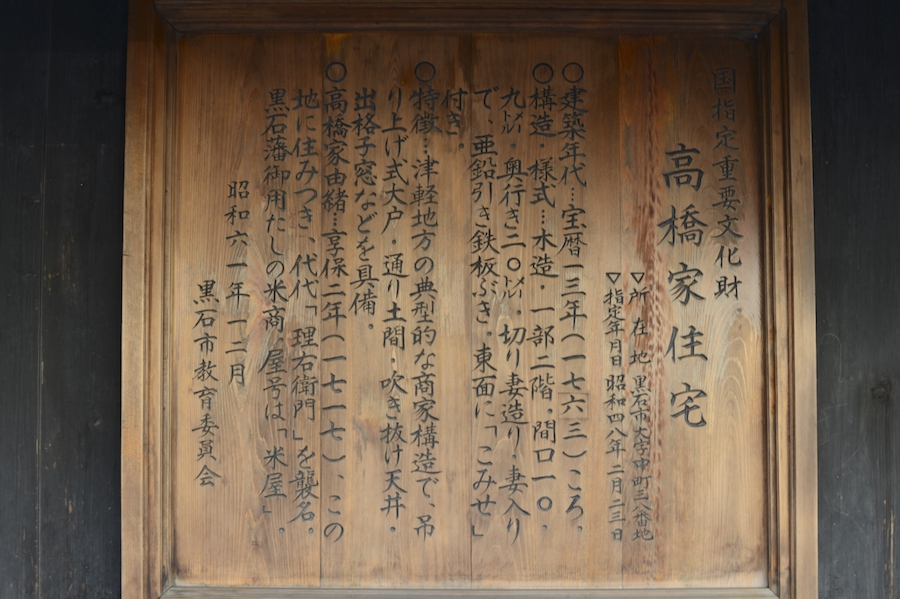 国指定重要文化財
高橋家住宅
▽所在地 黒石市大字中町三八番地
▽指定年月日 昭和四八年二月二三日
○建築年代…宝暦一三年(一七六三)ころ。
○構造・様式…木造・一部二階。間口一〇・
九㍍・奥行き二〇㍍。切り妻造り・妻入り
で、亜鉛引き鉄板ぶき。東面に「こみせ」
付き。
○特徴…津軽地方の典型的な商家構造で、吊
り上げ式大戸・通り土間・吹き抜け天井・
出格子窓などを具備。
○高橋家由緒…享保二年(一七一七)、この
地に住みつき、代代「理右衛門」を襲名。
黒石藩御用たしの米商。屋号は「米屋」。
昭和六一年一二月
黒石市教育委員会